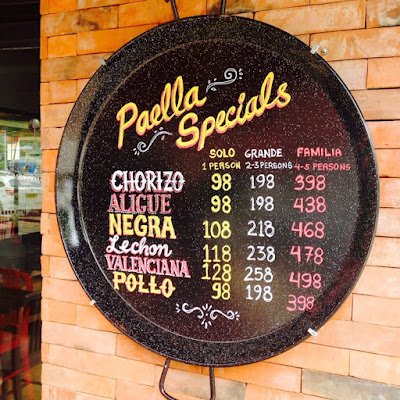 Paella
Specials
SOLO GRANDE FAMILIA
1 PERSON 2-3 PERSONS 4-5 PERSONS
CHORIZO 98 198 398
ALIGUE 98 198 438
NEGRA 108 218 468
Lechon 118 238 478
VALENCIANA 128 258 498
POLLO 98 198 398